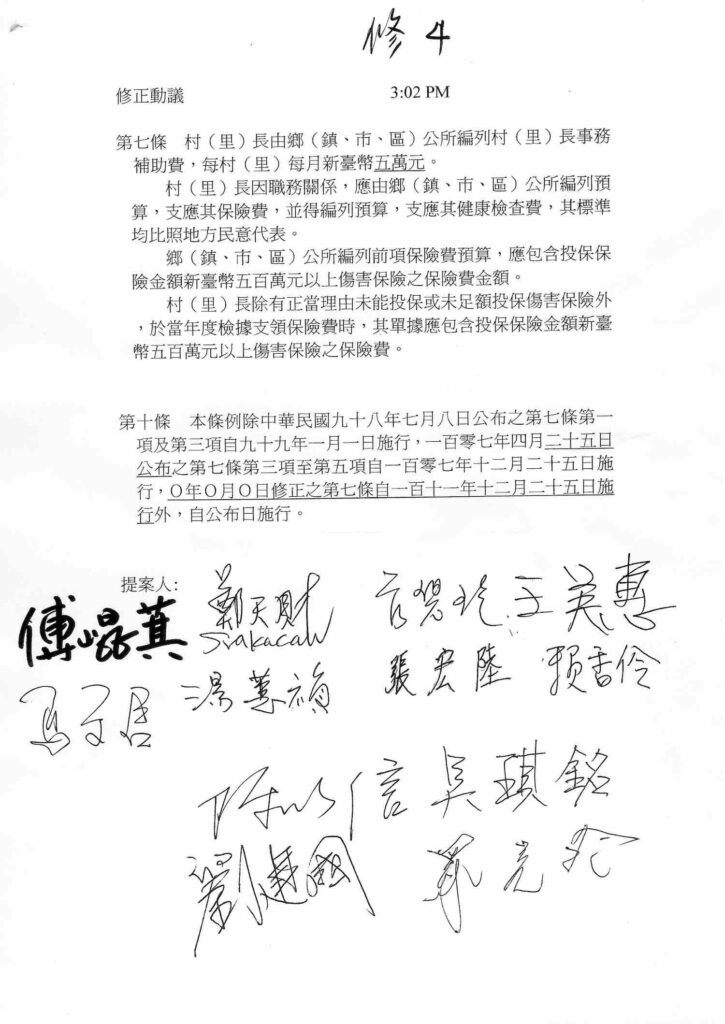 修 4
修正動議 3:02 PM
第七條 村（里）長由鄉（鎮、市、區）公所編列村（里）長事務
補助費，每村（里）每月新臺幣五萬元。
村（里）長因職務關係，應由鄉（鎮、市、區）公所編列預
算，支應其保險費，並得編列預算，支應其健康檢查費，其標準
均比照地方民意代表。
鄉（鎮、市、區）公所編列前項保險費預算，應包含投保保
險金額新臺幣五百萬元以上傷害保險之保險費金額。
村（里）長除有正當理由未能投保或未足額投保傷害保險外
，於當年度檢據支領保險費時，其單據應包含投保保險金額新臺
幣五百萬元以上傷害保險之保險費。
第十條 本條例除中華民國九十八年七月八日公布之第七條第一
項及第三項自九十九年一月一日施行，一百零七年四月二十五日
公布之第七條第三項至第五項自一百零七年十二月二十五日施
行，○年○月○日修正之第七條自一百十一年十二月二十五日施
行外，自公布日施行。
提案人：
傅崐萁 鄭天財 王美惠
Sra Kacaw
湯蕙禎 張宏陸 賴香伶
馬文君
陳以信 吳琪銘
劉建國